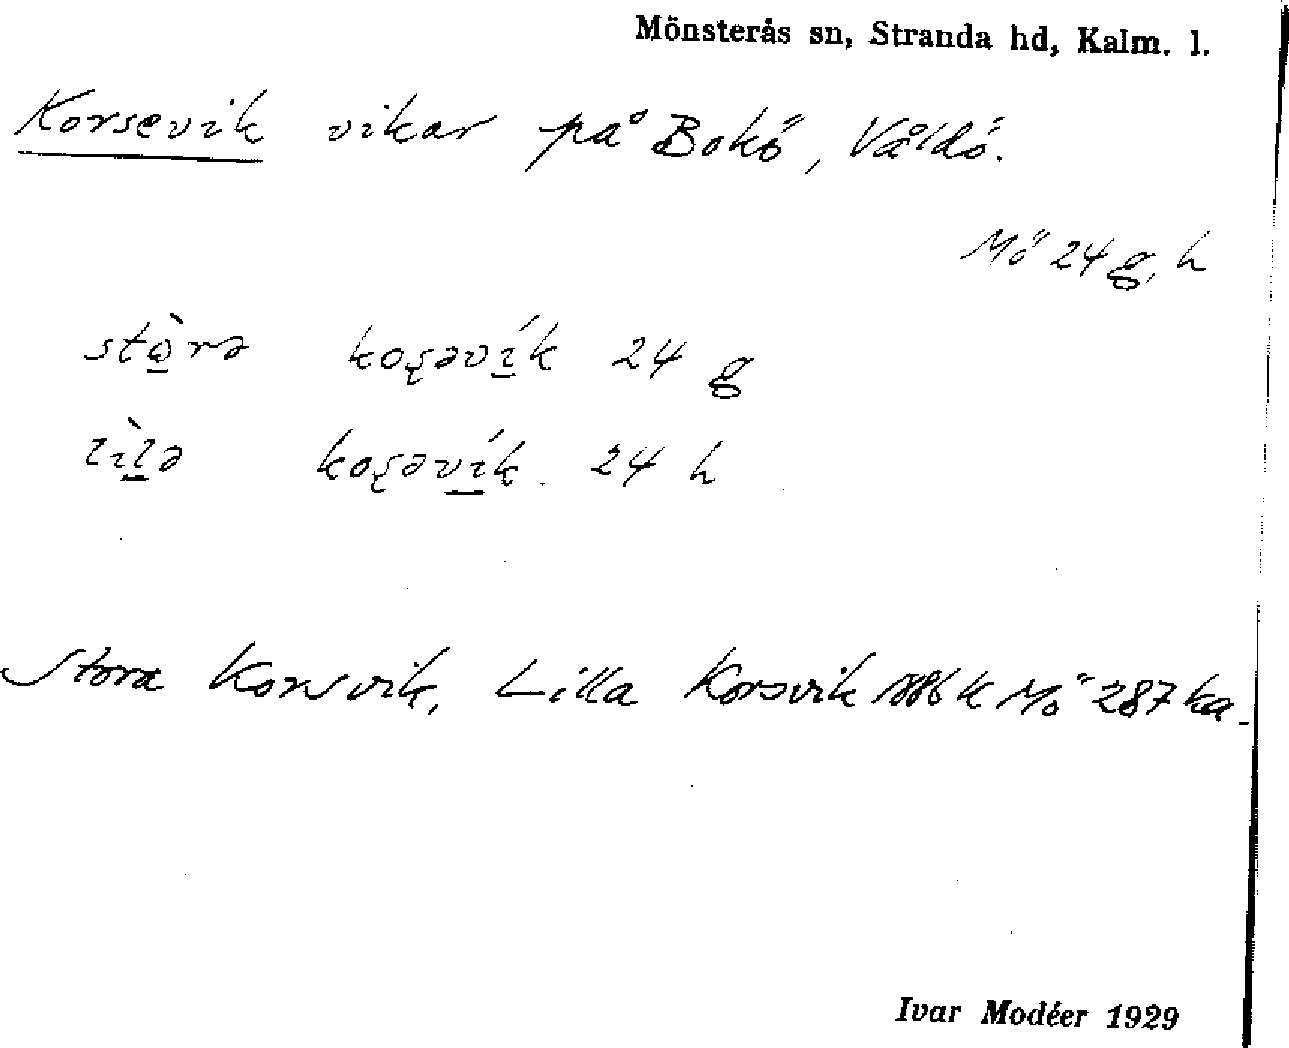 Mönsterås sn, Stranda hd, Kalm. l.
Korsevik vikar på Bokö, Våldö.
Mö 24 g, h
stò̱rə koʂəví̱k 24 g
lìḻə koʂəví̱k. 24 h
Stora Korsvik, Lilla Korsvik 1886 k Mö 287 ka.
Ivar Modéer 1929